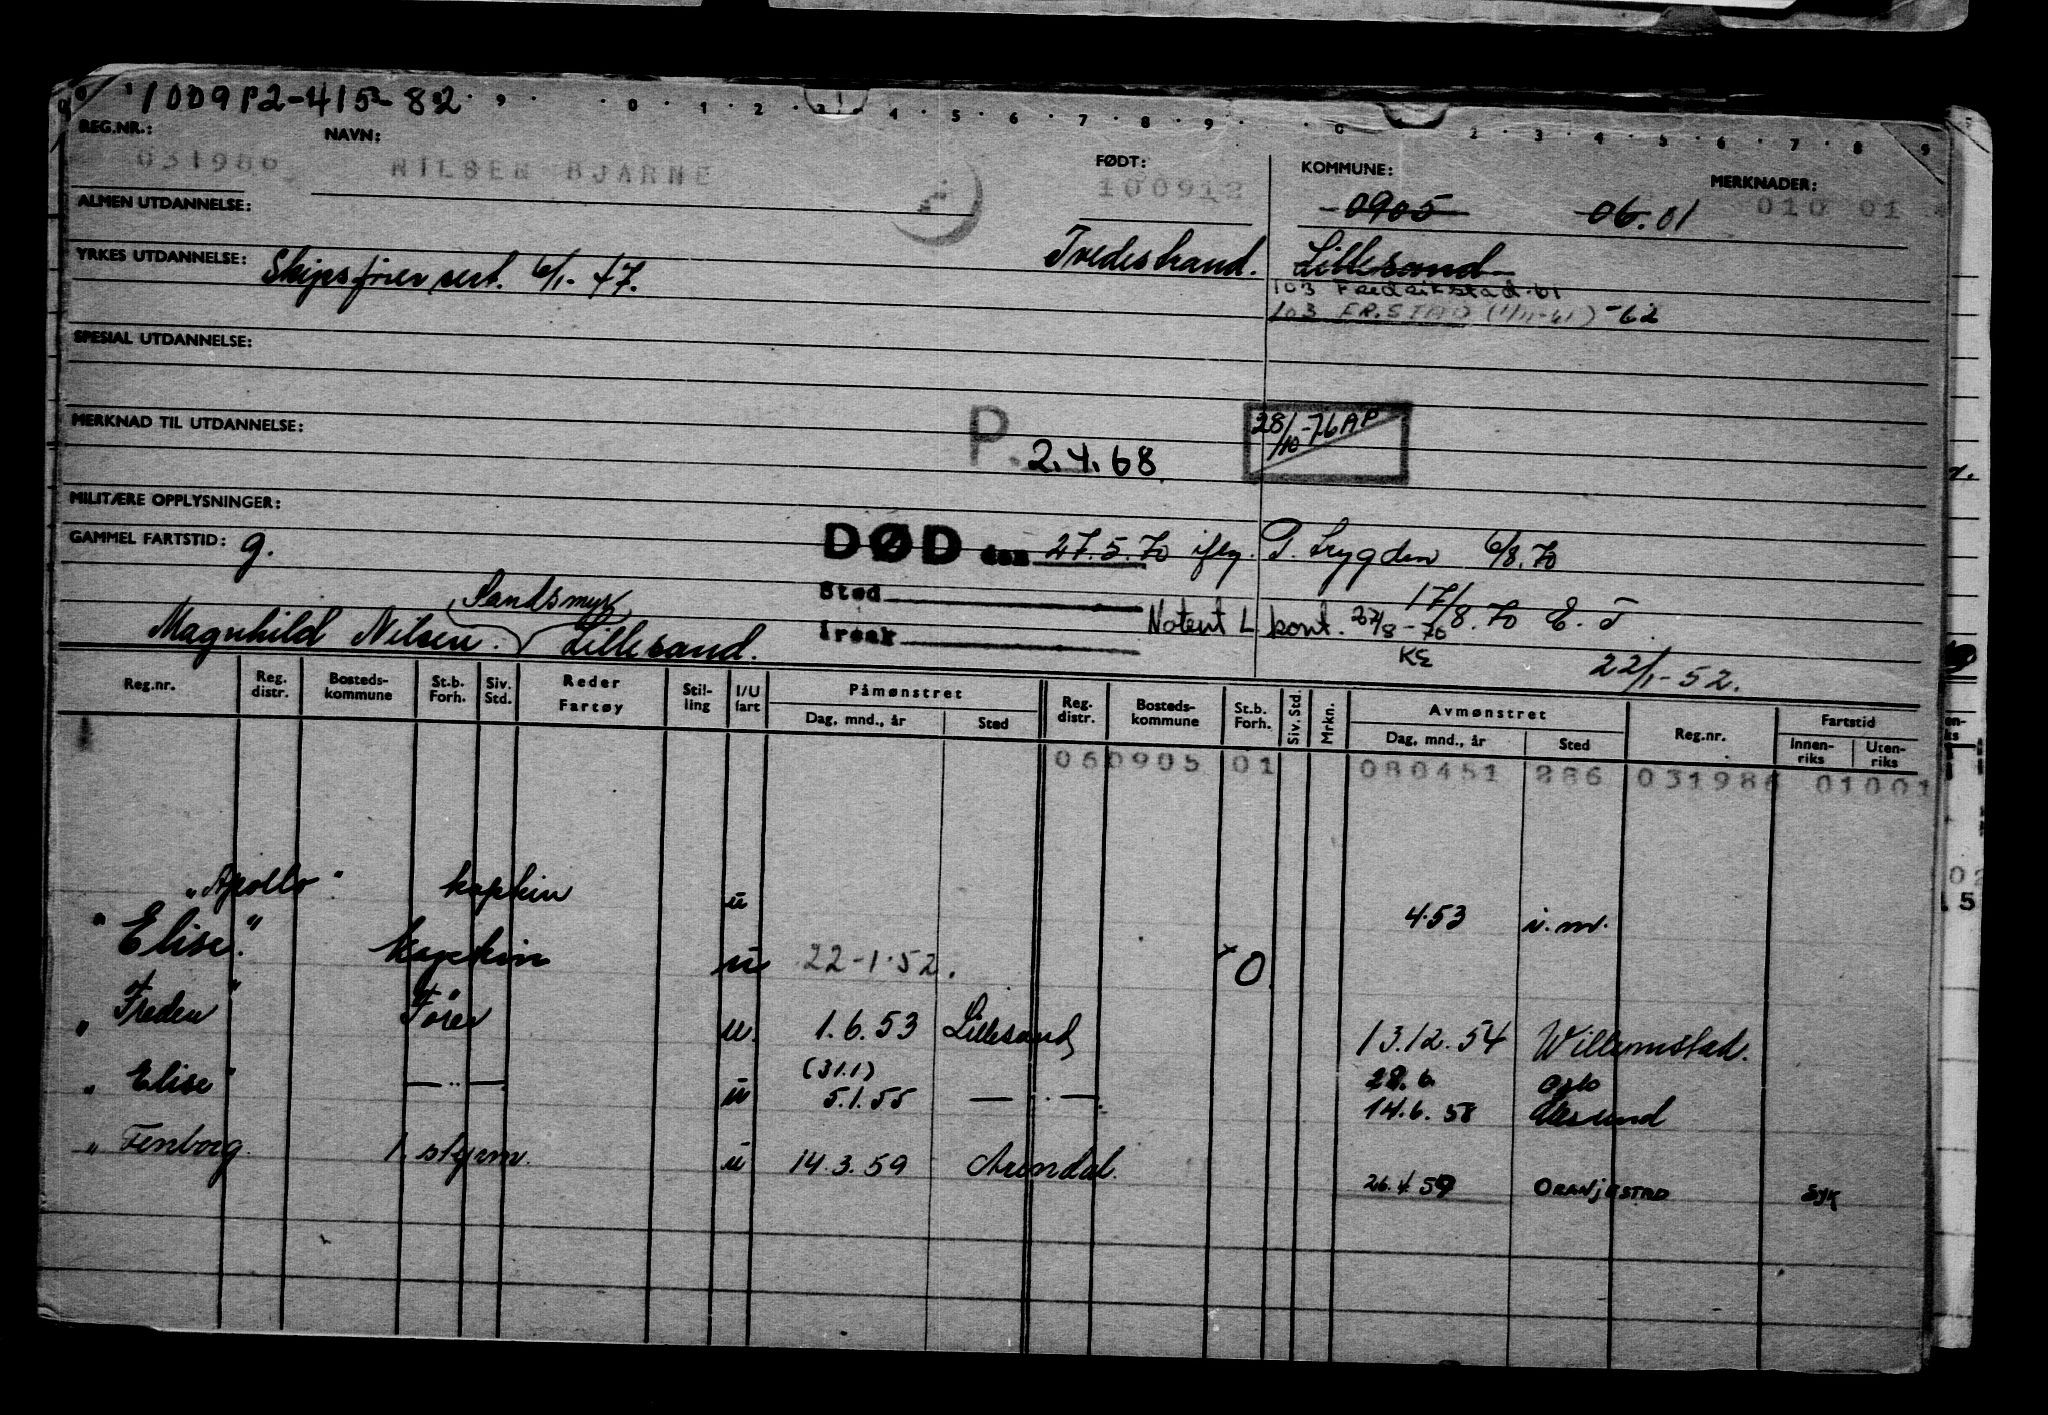 100912-415-82
REG.NR.: NAVN: FØDT: KOMMUNE: MERKNADER:
031986 NILSEN BJARNE 100912 -0905- -06.01 010 01
ALMEN UTDANNELSE:
YRKES UTDANNELSE: Skipsfører sert. 6/1-47. Tvedestrand. Lillesand
103 Fredrikstad-61
103 FR.STAD (1/11-61) -62
SPESIAL UTDANNELSE:
MERKNAD TIL UTDANNELSE: P. 2.4.68. 28/10-76 AP
MILITÆRE OPPLYSNINGER:
GAMMEL FARTSTID: g. DØD den 27.5.70 iflg. P. Trygden 6/8.70
Sandsmyr Sted 17/8.70 E. T.
Magnhild Nilsen. Lillesand. Årsak Notert L. kont. 27/8-70
KE 22/1-52.
Reg.nr. Reg. distr. Bosteds-kommune St.b. Forh. Siv. Std. Reder Fartøy Stil-ling I/U fart Påmønstret Dag, mnd., år Sted Reg. distr. Bosteds-kommune St.b. Forh. Siv. Std. Mrkn. Avmønstret Dag, mnd., år Sted Reg.nr. Fartstid Innen-riks Uten-riks
060905 01 080451 886 031986 01001
"Apollo" kaptein u 4.53 i.m.
"Elise" kaptein u 22-1-52. O
"Freden" Fører u. 1.6.53 Lillesand 13.12.54 Willemstad.
(31.1) 28.6. Oslo
"Elise" —"— u 5.1.55 —"— 14.6.58 Ålesund
"Fenborg 1. styrm. u 14.3.59 Arendal. 26.4.59 ORANJESTAD SYK